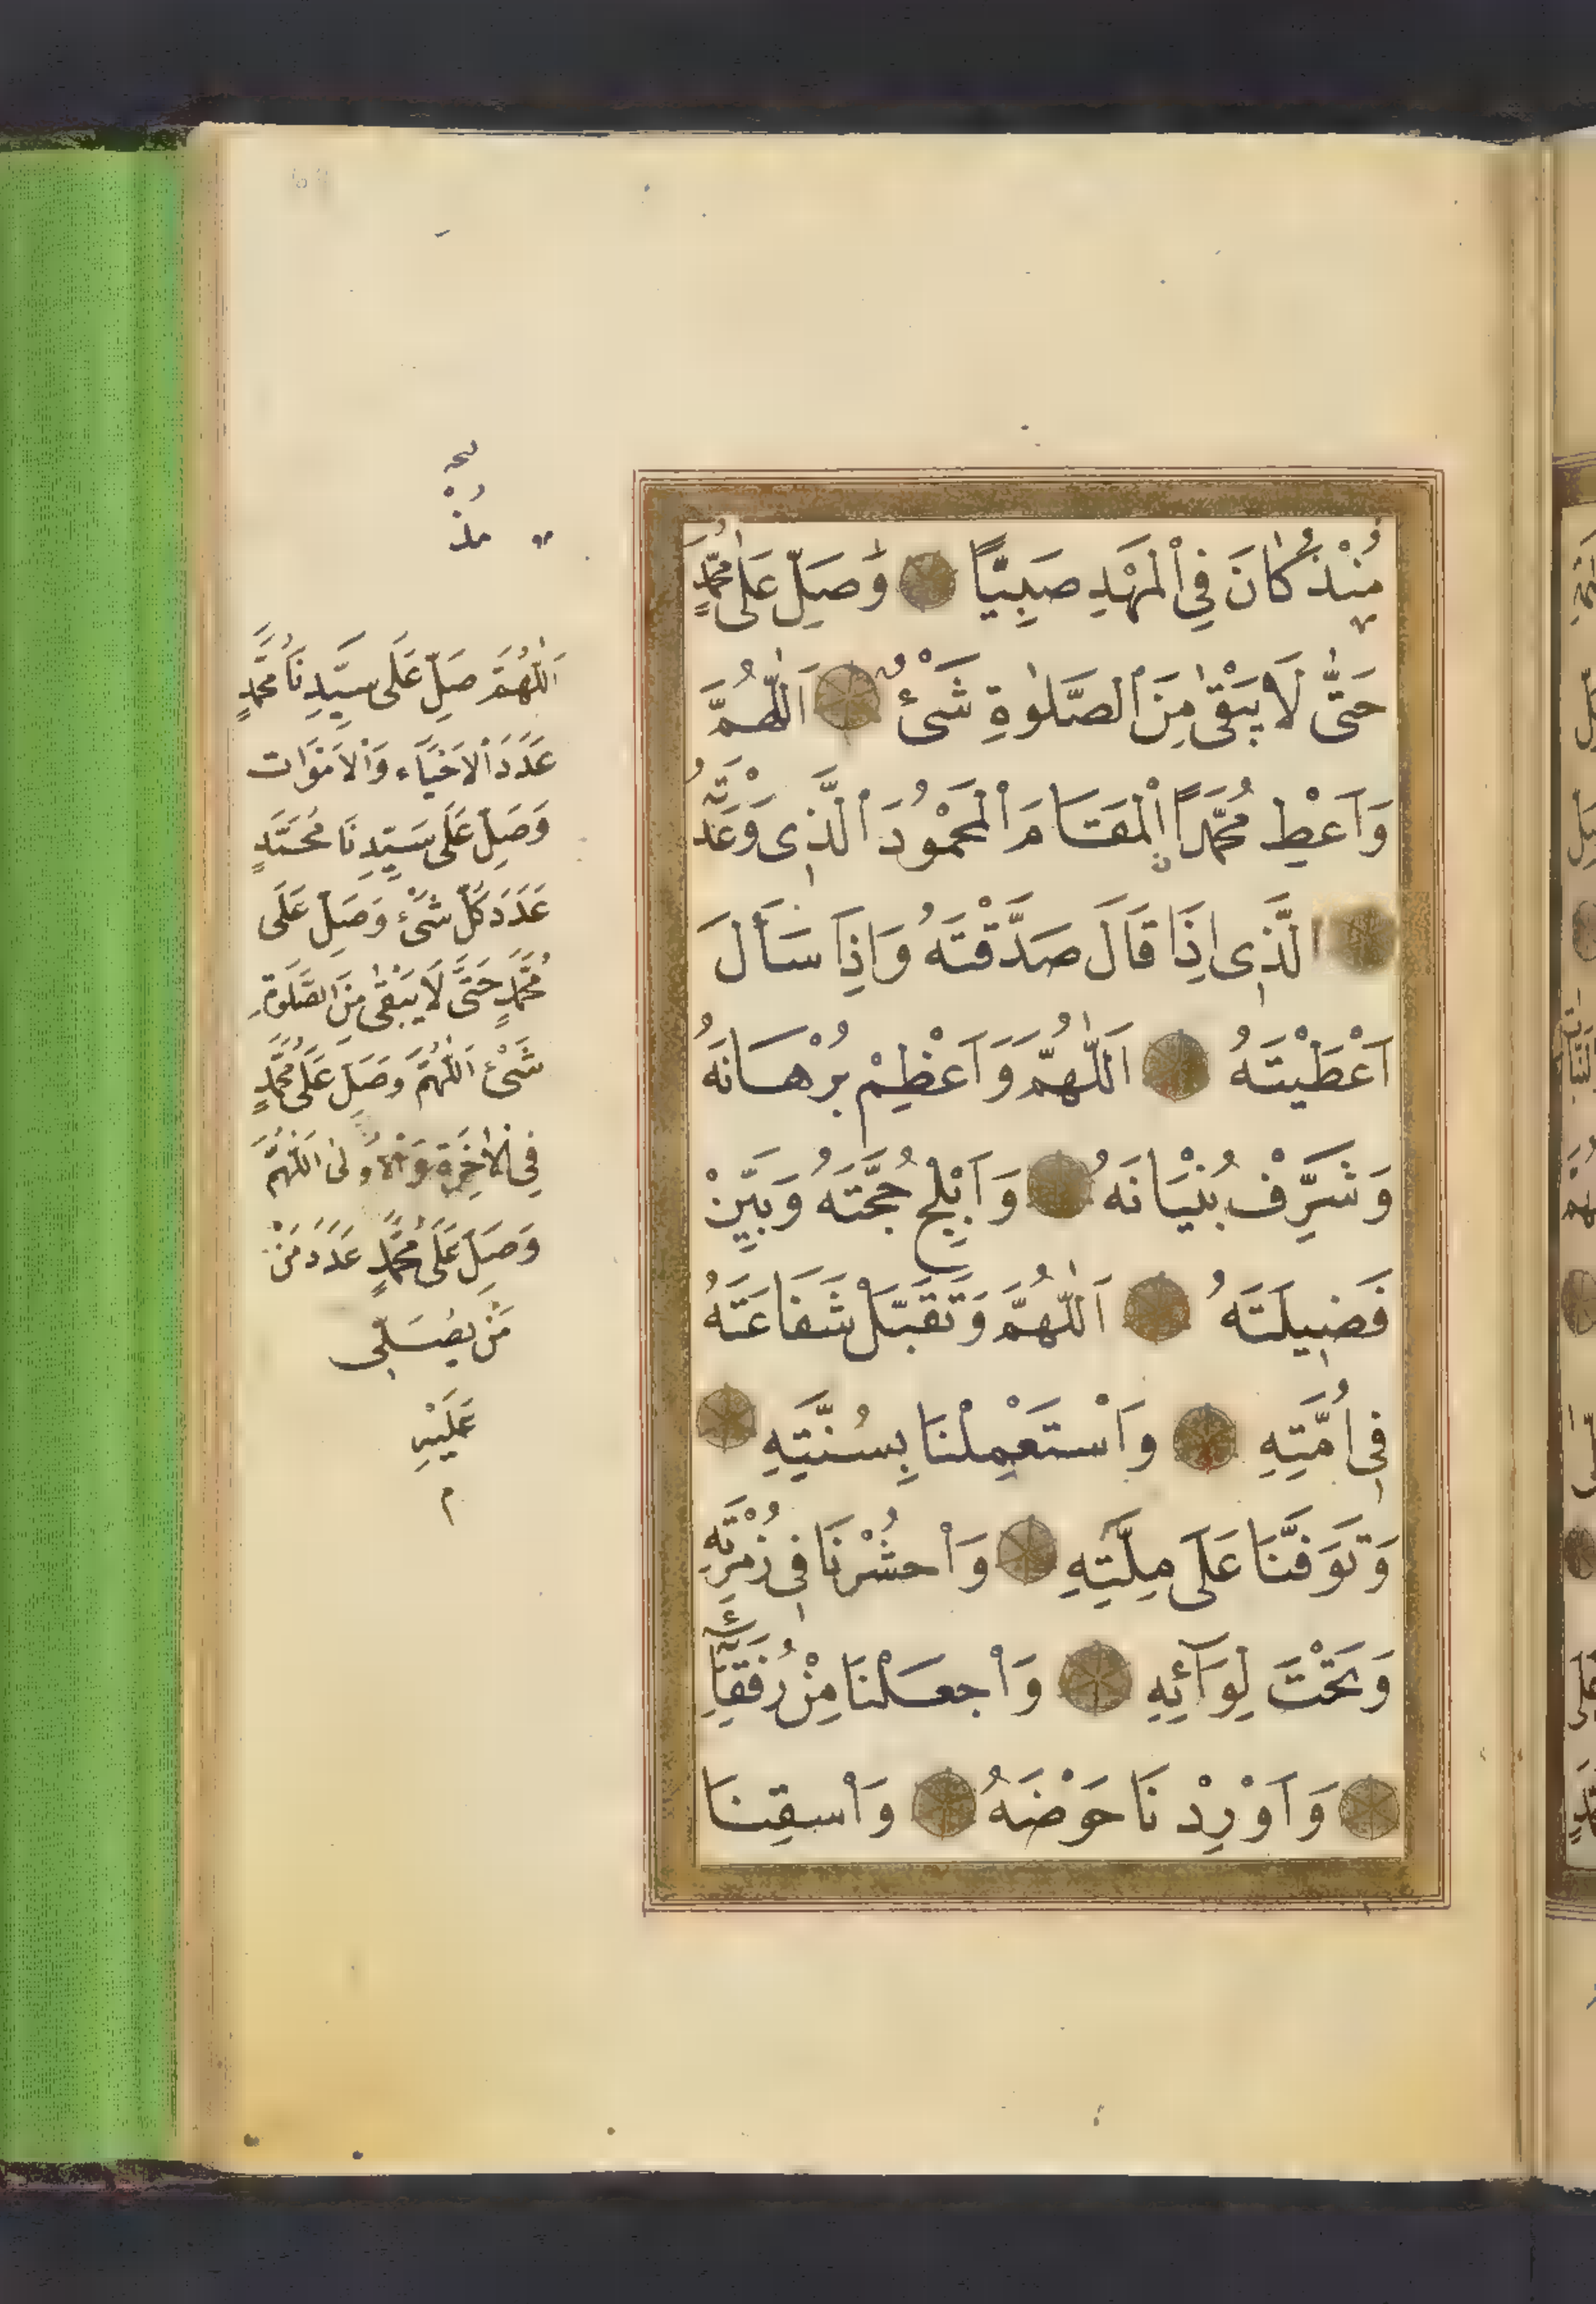 مُنْذُ كَانَ فِي الْمَهْدِ صَبِيًّا وَصَلِّ عَلَى مُحَمَّدٍ
حَتَّى لَا يَبْقٰى مِنَ الصَّلٰوةِ شَيْءٌ اَللّٰهُمَّ
وَاَعْطِ مُحَمَّدًا الْمَقَامَ الْمَحْمُودَ الَّذِي وَعَدْتَهُ
الَّذِي اِذَا قَالَ صَدَّقْتَهُ وَاِذَا سَأَلَ
اَعْطَيْتَهُ اَللّٰهُمَّ وَاَعْظِمْ بُرْهَانَهُ
وَشَرِّفْ بُنْيَانَهُ وَاَبْلِجْ حُجَّتَهُ وَبَيِّنْ
فَضِيلَتَهُ اَللّٰهُمَّ وَتَقَبَّلْ شَفَاعَتَهُ
فِي اُمَّتِهِ وَاسْتَعْمِلْنَا بِسُنَّتِهِ
وَتَوَفَّنَا عَلَى مِلَّتِهِ وَاحْشُرْنَا فِي زُمْرَتِهِ
وَتَحْتَ لِوَآئِهِ وَاجْعَلْنَا مِنْ رُفَقَآئِهِ
وَاَوْرِدْنَا حَوْضَهُ وَاسْقِنَا
مذ
اَللّٰهُمَّ صَلِّ عَلَى سَيِّدِنَا مُحَمَّدٍ
عَدَدَ الْاَحْيَآءِ وَالْاَمْوَات
وَصَلِّ عَلَى سَيِّدِنَا مُحَمَّدٍ
عَدَدَ كُلِّ شَيْءٍ وَصَلِّ عَلَى
مُحَمَّدٍ حَتَّى لَا يَبْقٰى مِنَ الصَّلٰوةِ
شَيْءٌ اَللّٰهُمَّ وَصَلِّ عَلَى مُحَمَّدٍ
فِي الْاٰخِرَةِ وَالْاُولٰى اَللّٰهُمَّ
وَصَلِّ عَلَى مُحَمَّدٍ عَدَدَ مَنْ
مَنْ يُصَلِّي
عَلَيْهِ
م